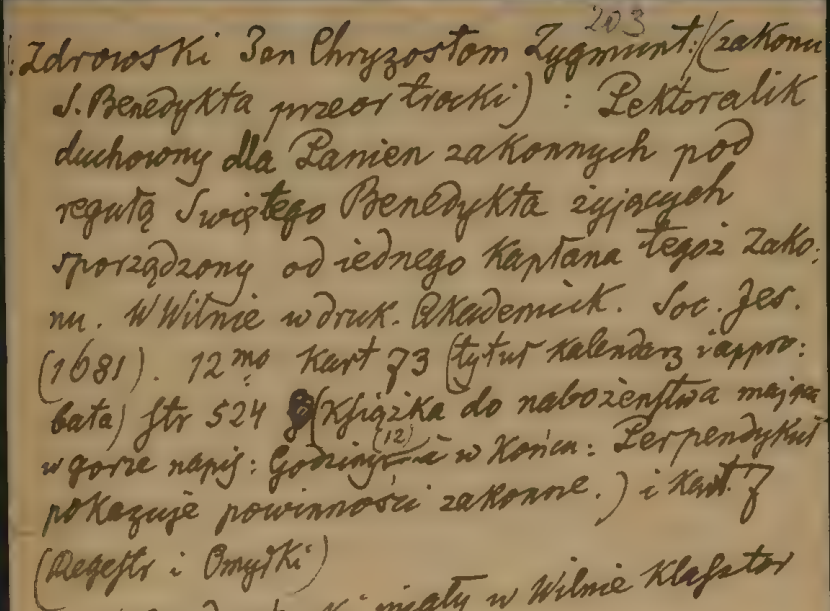 203
Zdrowski Jan Chryzostom Zygmunt: (zakonu
S. Benedykta przeor trocki) : Lektoralik
duchowny dla Panien zakonnych pod
regułą Swiętego Benedykta żyjących
sporządzony od iednego Kapłana tegoż Zako:
nu. W Wilnie w druk. Akademick. Soc. Jes.
(1681). 12mo Kart 73 (tytuł Kalendarz i appro:
bata) str 524 (Książka do nabożeństwa mająca
w gorze napis: Godziny (12) w Końcu: Perpendykuł
pokazuje powinności zakonne.) i Kart. 7
(Regestr i Omyłki)
miały w Wilnie Klasztor